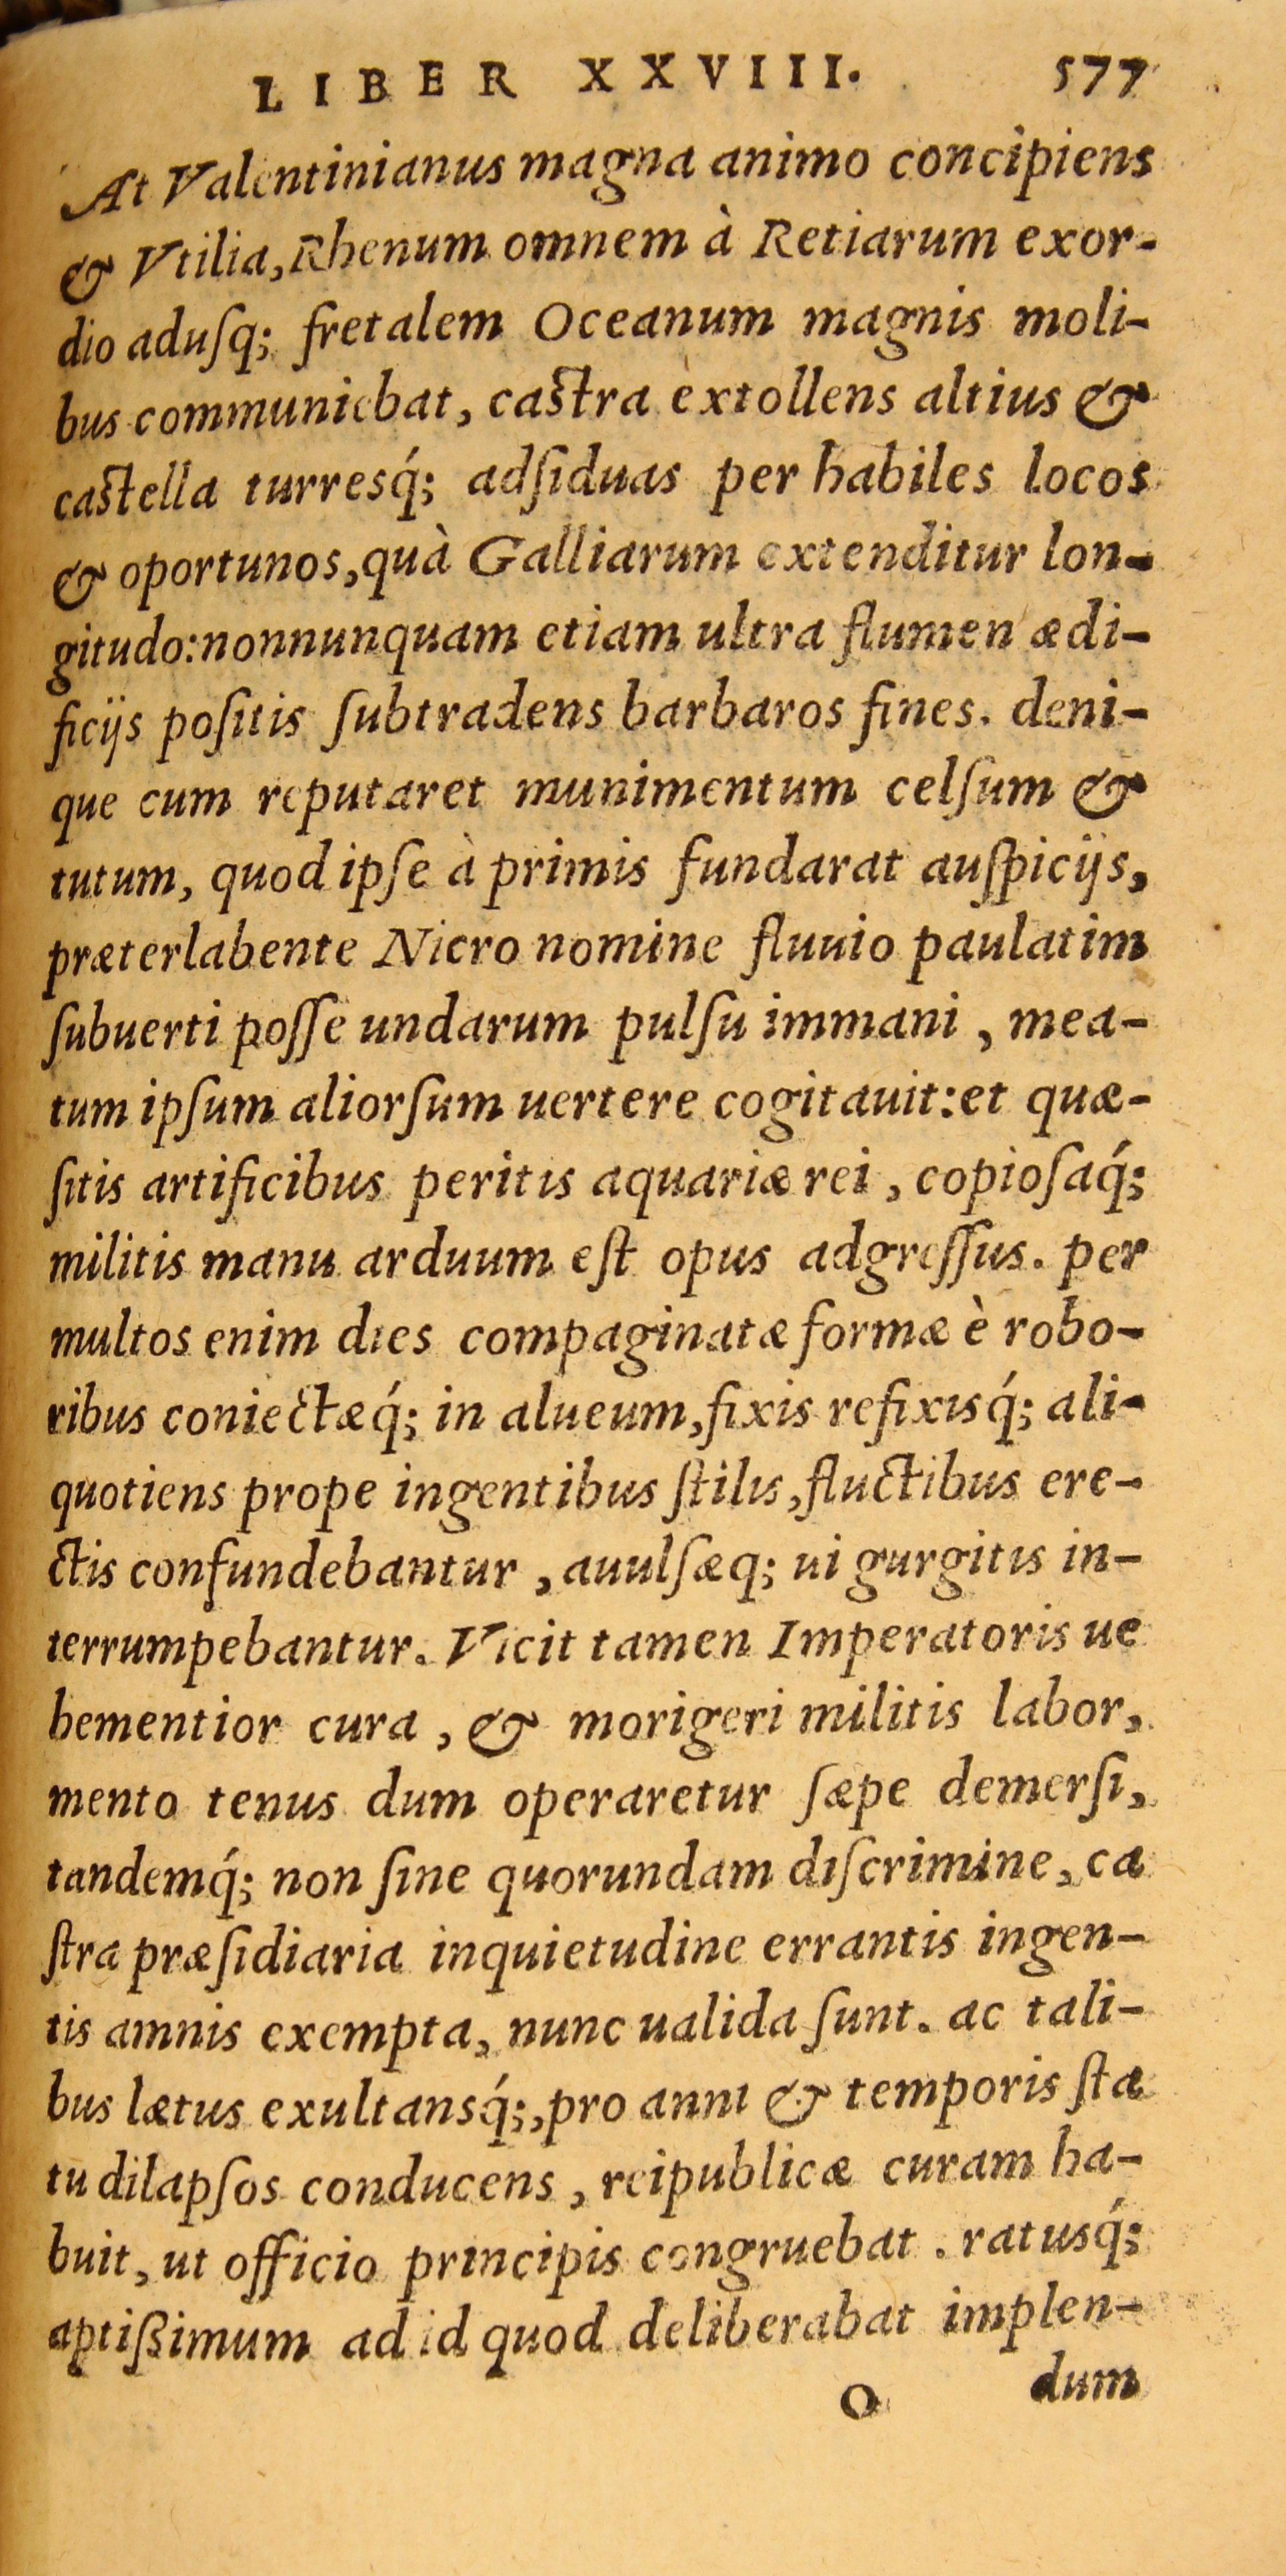 LIBER XXVIII. 577
At Valentinianus magna animo concipiens
& Vtilia, Rhenum omnem à Retiarum exor-
dio aduſq; fretalem Oceanum magnis moli-
bus communiebat, caſtra extollens altius &
caſtella turresq́; adſiduas per habiles locos
& oportunos, quà Galliarum extenditur lon-
gitudo: nonnunquam etiam ultra flumen ædi-
ficijs poſitis ſubtradens barbaros fines. deni-
que cum reputaret munimentum celſum &
tutum, quod ipſe à primis fundarat auſpicijs,
præterlabente Nicro nomine fluuio paulatim
ſubuerti poſſe undarum pulſu immani, mea-
tum ipſum aliorſum uertere cogitauit: et quæ-
ſitis artificibus peritis aquariæ rei, copioſaq́;
militis manu arduum eſt opus adgreſſus. per
multos enim dies compaginatæ formæ è robo-
ribus coniectæq́; in alueum, fixis refixisq́; ali-
quotiens prope ingentibus ſtilis, fluctibus ere-
ctis confundebantur, auulſæq; ui gurgitis in-
terrumpebantur. Vicit tamen Imperatoris ue
hementior cura, & morigeri militis labor,
mento tenus dum operaretur ſæpe demerſi,
tandemq́; non ſine quorundam diſcrimine, ca
ſtra præſidiaria inquietudine errantis ingen-
tis amnis exempta, nunc ualida ſunt. ac tali-
bus lætus exultansq́;, pro anni & temporis ſta
tu dilapſos conducens, reipublicæ curam ha-
buit, ut officio principis congruebat. ratusq́;
aptißimum ad id quod deliberabat implen-
O dum